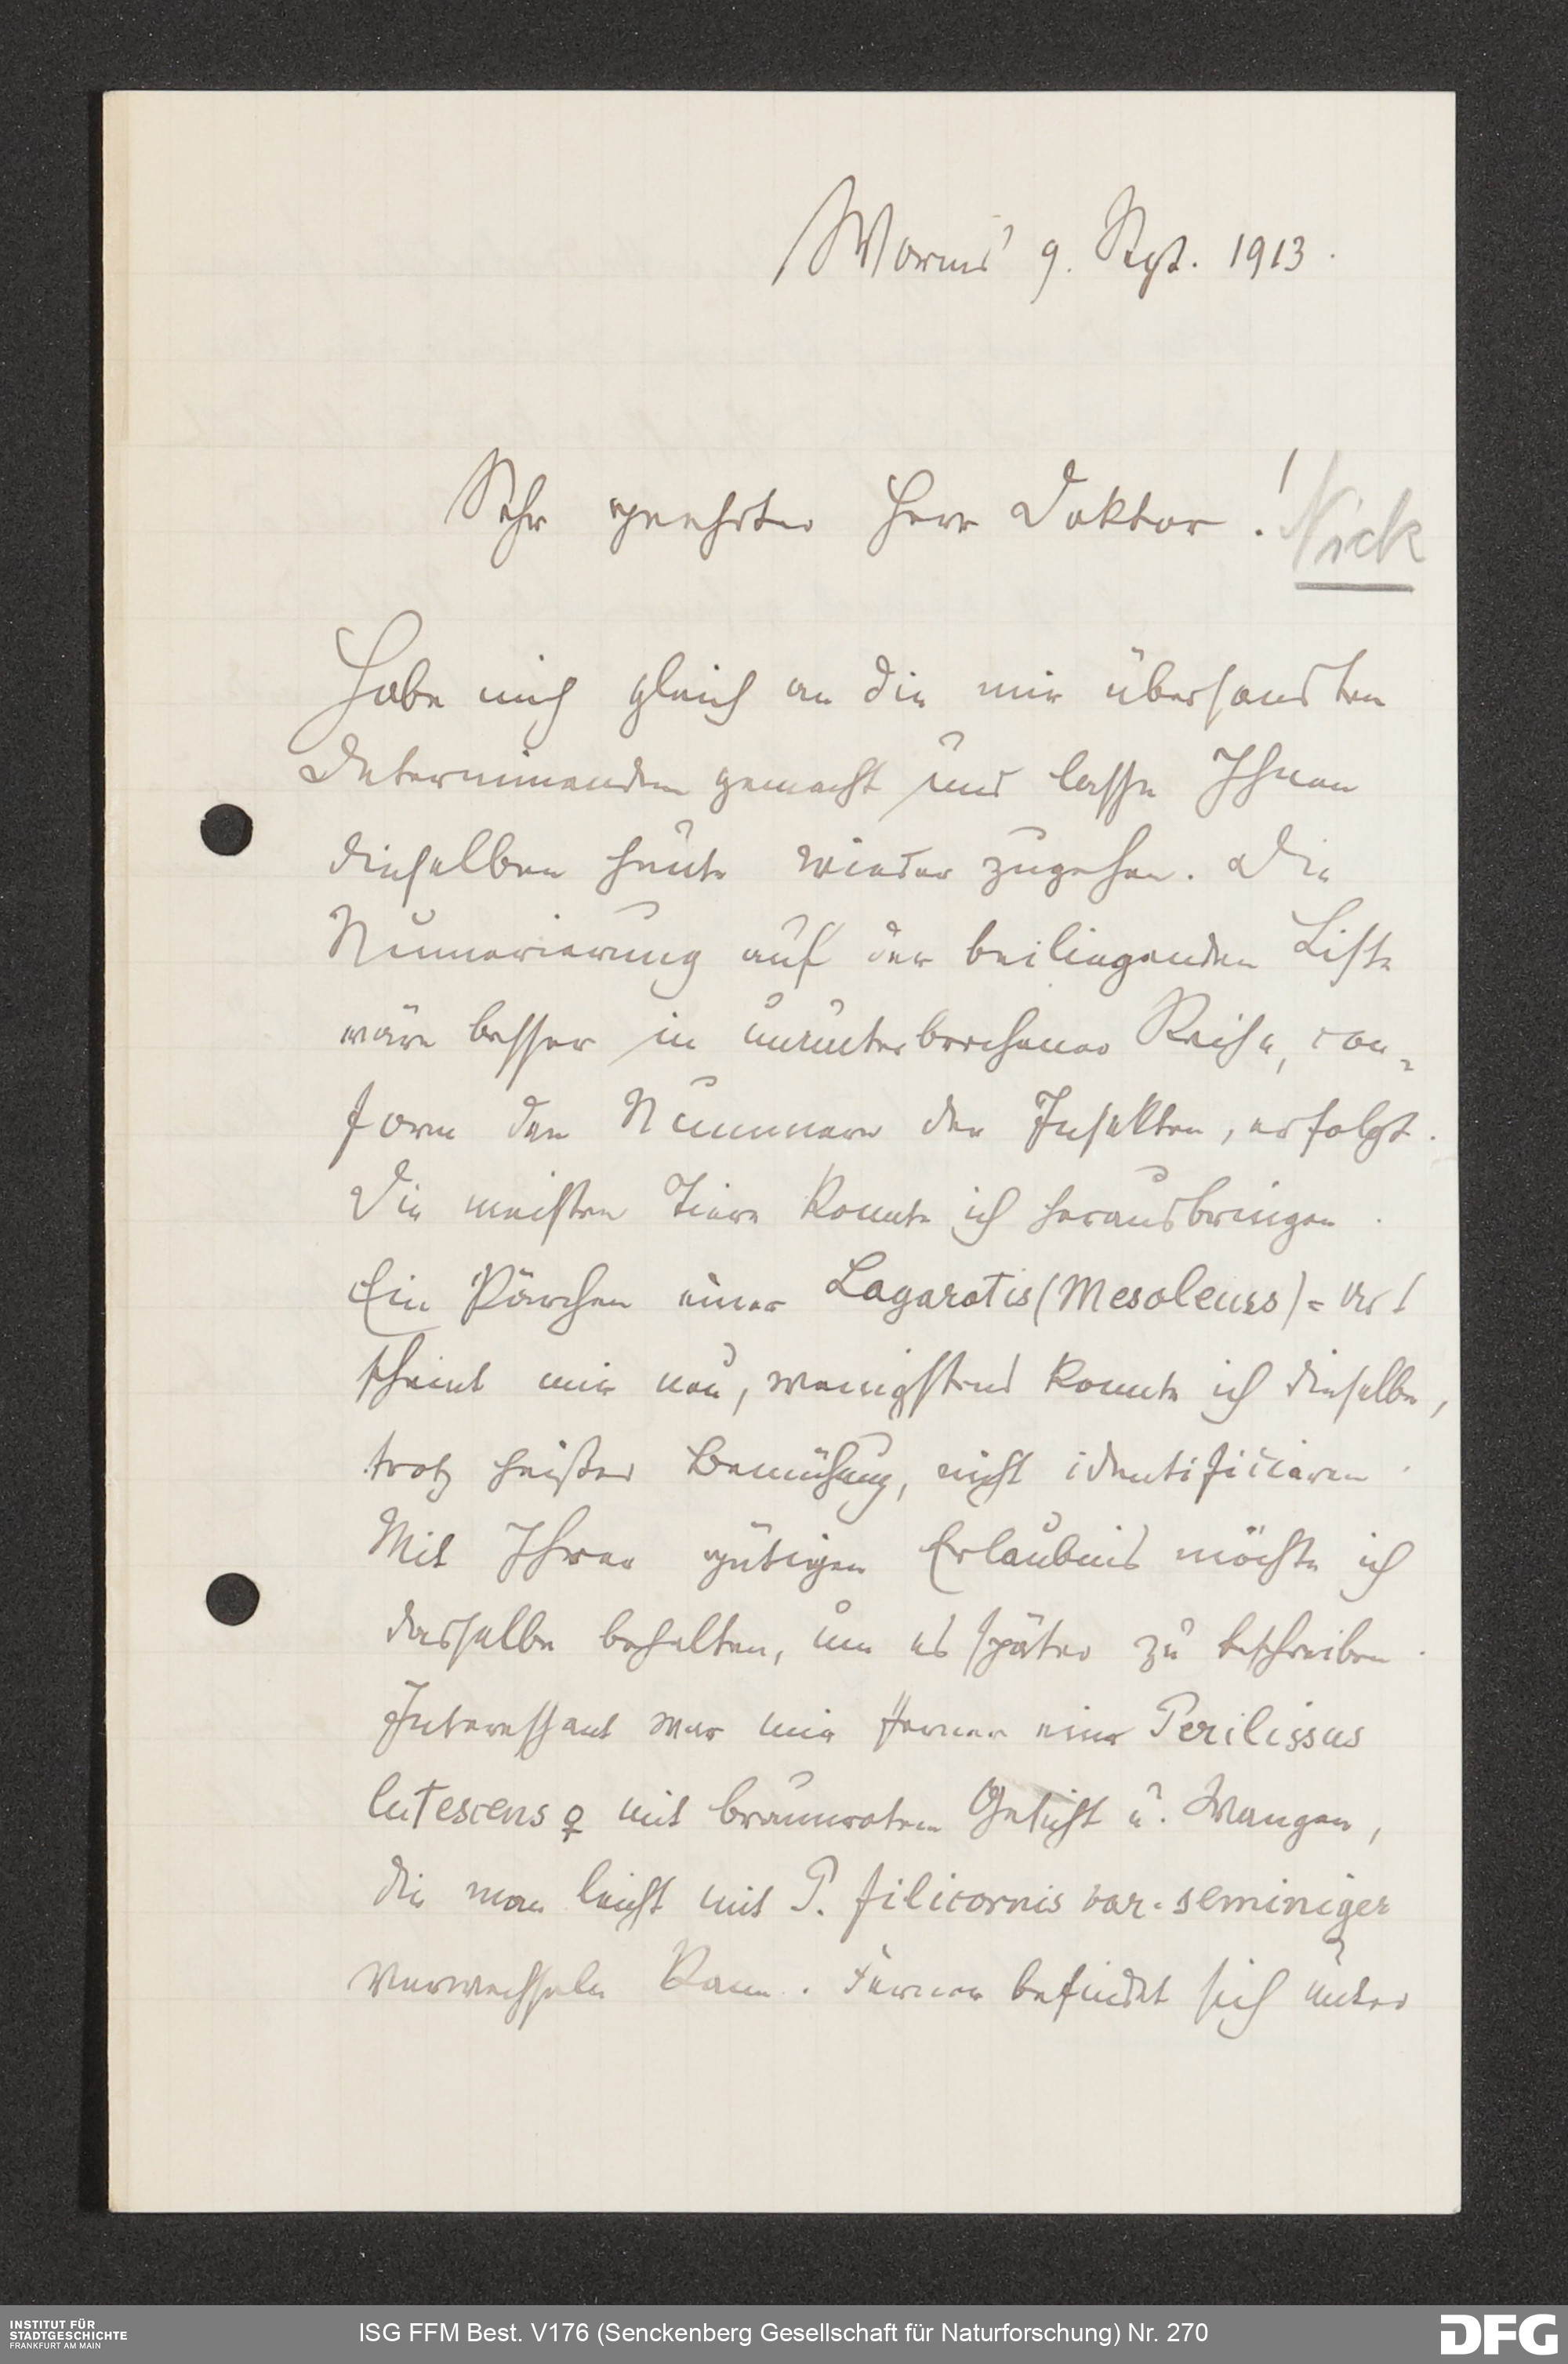 Worms 9. Sept. 1913.
Sehr geehrter Herr Doktor!
Nick
Habe mich gleich an die mir übersandten
Determinanden gemacht und lasse Ihnen
dieselben heute wieder zugehen. Die
Numerierung auf der beiliegenden Liste
wäre besser in ununterbrochener Reihe, con-
form den Nummern der Insekten, erfolgt.
Die meisten Tiere konnte ich herausbringen.
Ein Pärchen einer Lagarotis (Mesoleius)=Art
scheint mir neu, wenigstens konnte ich dieselbe,
trotz heißer Bemühung, nicht identificieren.
Mit Ihrer gütigen Erlaubnis möchte ich
dasselbe behalten, um es später zu beschreiben.
Interessant war mir ferner eine Perilissus
lutescens ♀ mit braunrotem Gesicht u. Wangen,
die man leicht mit P. filicornis var. seminiger
verwechseln kann. Ferner befindet sich unter
INSTITUT FÜR
STADTGESCHICHTE
FRANKFURT AM MAIN
ISG FFM Best. V176 (Senckenberg Gesellschaft für Naturforschung) Nr. 270
DFG